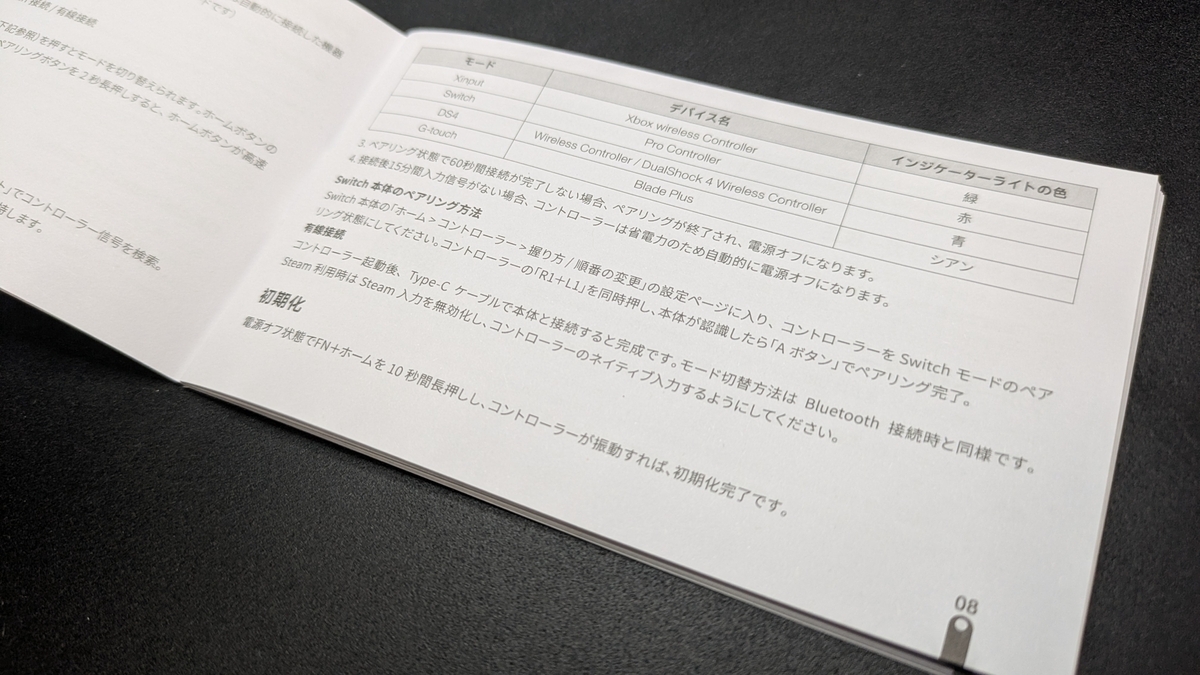 自動的に接続した機器
ドです)
接続 / 有線接続
下記参照)を押すとモードを切り替えられます。ホームボタンの
ペアリングボタンを2秒長押しすると、ホームボタンが高速
」でコントローラー信号を検索。
待します。
モード デバイス名 インジケーターライトの色
Xinput Xbox wireless Controller 緑
Switch Pro Controller 赤
DS4 Wireless Controller / DualShock 4 Wireless Controller 青
G-touch Blade Plus シアン
3. ペアリング状態で60秒間接続が完了しない場合、ペアリングが終了され、電源オフになります。
4. 接続後15分間入力信号がない場合、コントローラーは省電力のため自動的に電源オフになります。
Switch 本体のペアリング方法
Switch 本体の「ホーム > コントローラー > 握り方 / 順番の変更」の設定ページに入り、コントローラーを Switch モードのペア
リング状態にしてください。コントローラーの「R1+L1」を同時押し、本体が認識したら「A ボタン」でペアリング完了。
有線接続
コントローラー起動後、Type-C ケーブルで本体と接続すると完成です。モード切替方法は Bluetooth 接続時と同様です。
Steam 利用時は Steam 入力を無効化し、コントローラーのネイティブ入力するようにしてください。
初期化
電源オフ状態でFN+ホームを 10 秒間長押しし、コントローラーが振動すれば、初期化完了です。
08